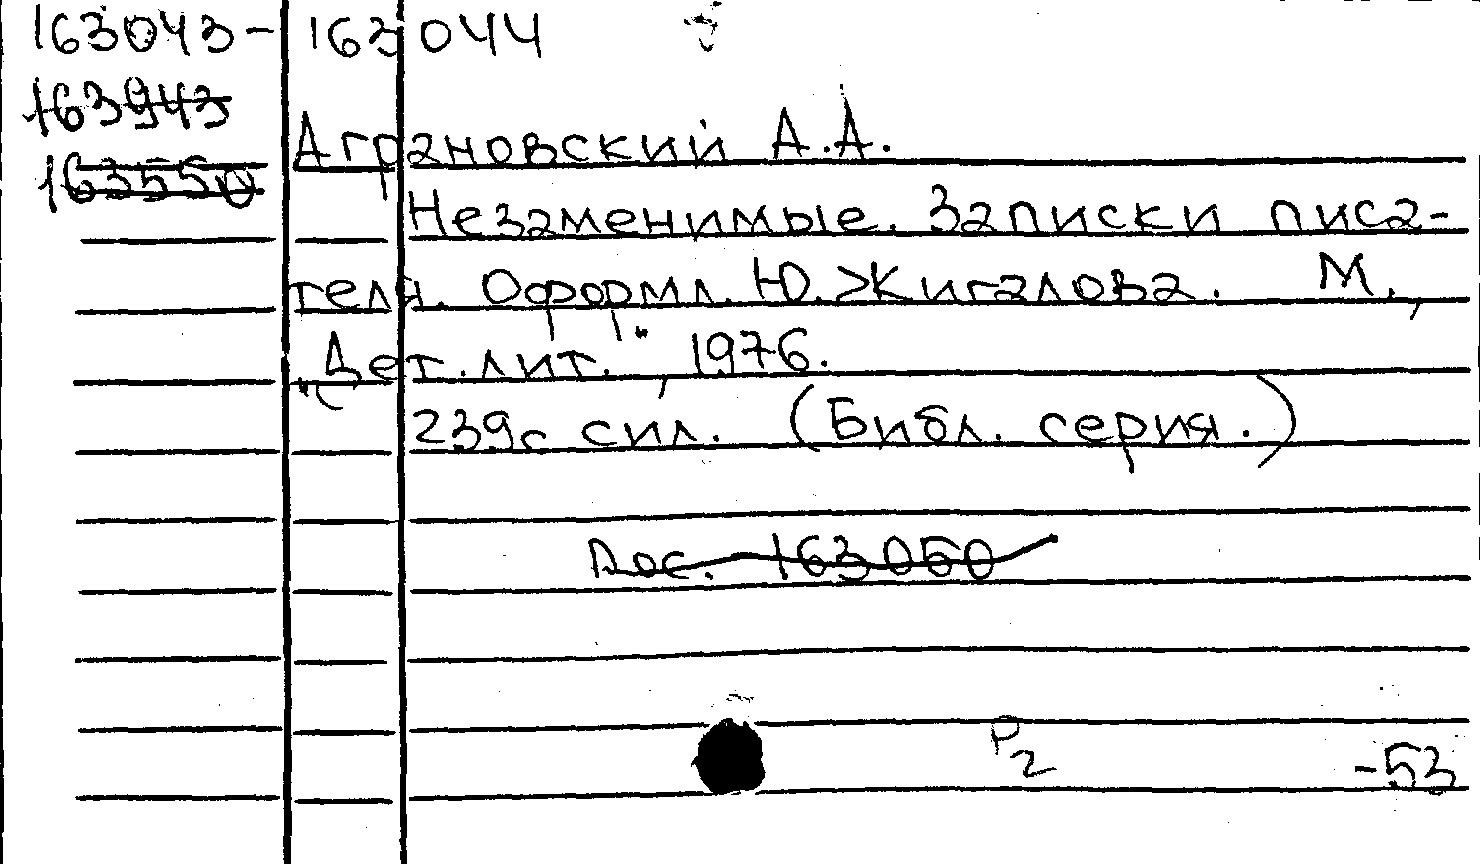 163043- 163044
163943
163550
Аграновский А.А.
Незаменимые. Записки писа-
теля. Оформл. Ю. Жигалова. М.,
"Дет. лит.", 1976.
239с с ил. (Библ. серия.)
Дос. 163050
Р2
-53